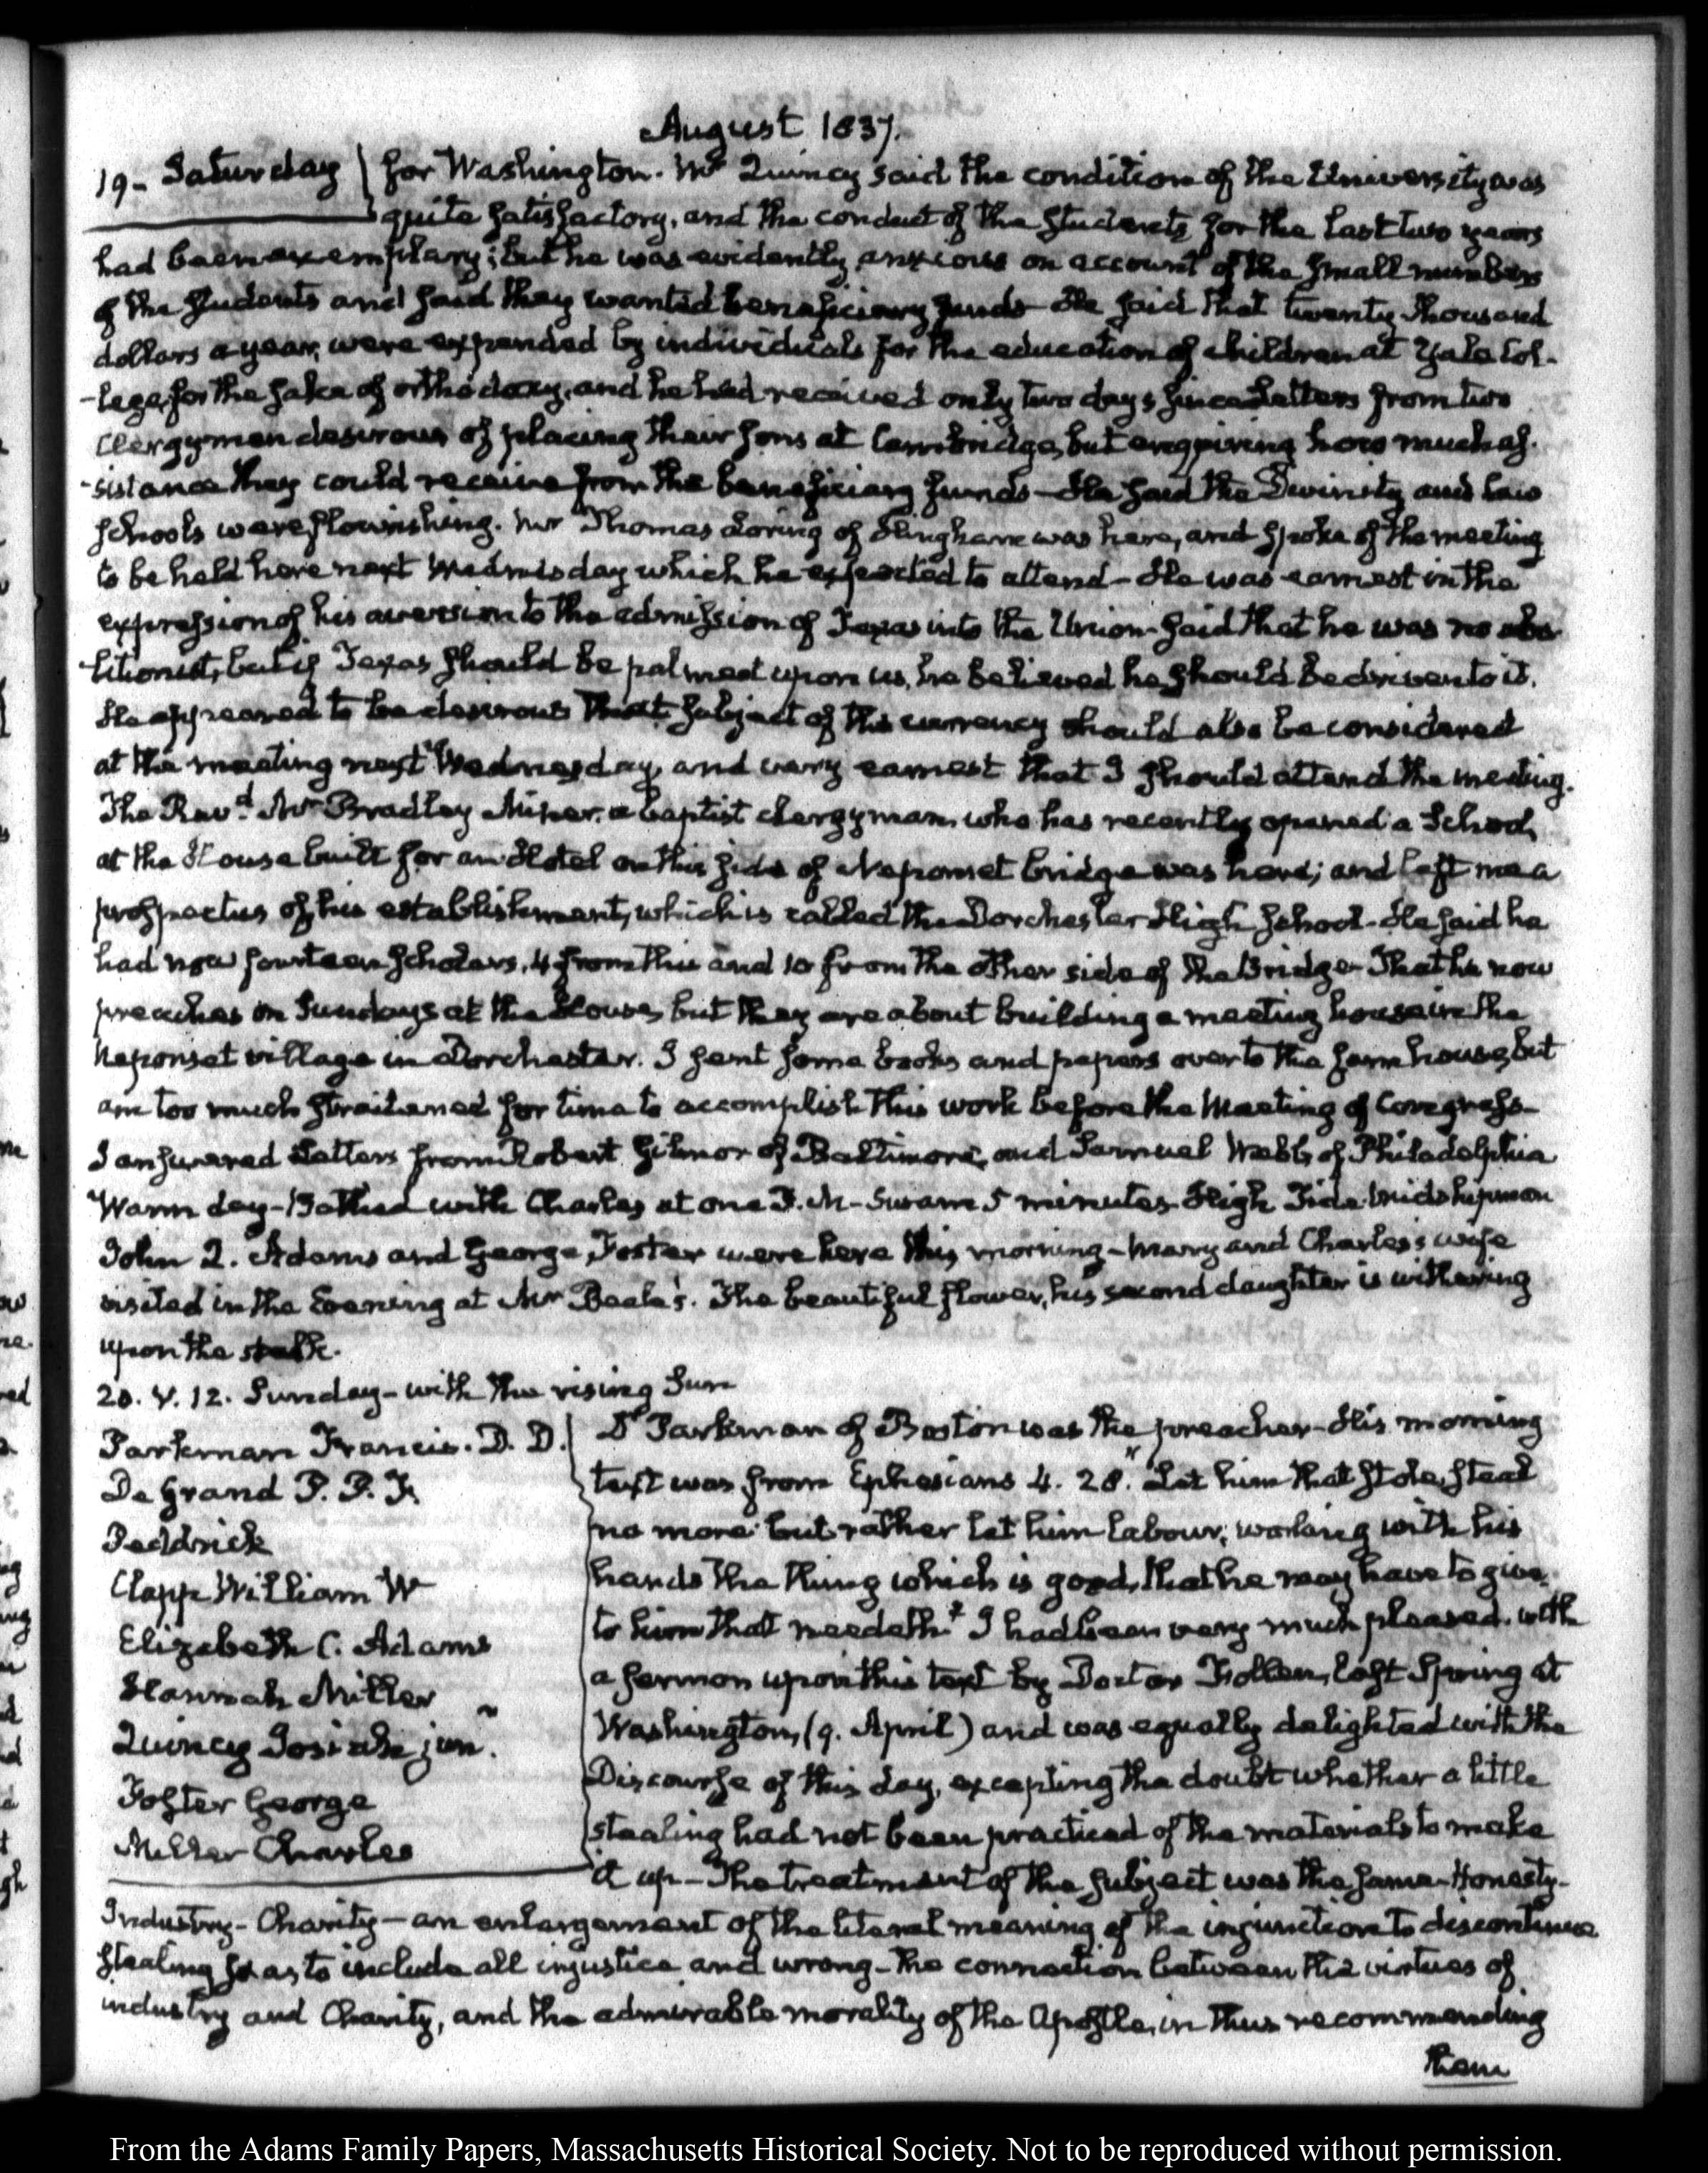 August 1837.
19- Saturday for Washington. Mr Quincy said the condition of the University was
quite satisfactory, and the conduct of the students for the last two years
had been exemplary; but he was evidently anxious on account of the small numbers
of the students and said they wanted beneficiary funds- He said that twenty thousand
dollars a year, were expended by individuals for the education of children at Yale Col-
-lege, for the sake of orthodoxy, and he had received only two days since Letters from two
Clergymen desirous of placing their sons at Cambridge, but enquiring how much as-
-sistance they could receive from the beneficiary funds- He said the Divinity and Law
schools were flourishing. Mr Thomas Loring of Hingham was here, and spoke of the meeting
to be held here next Wednesday which he expected to attend- He was earnest in the
expression of his aversion to the admission of Texas into the Union- Said that he was no abo-
-litionist, but if Texas should be palmed upon us, he believed he should be driven to it.
He appeared to be desirous that subject of the currency should also be considered
at the meeting next Wednesday, and very earnest that I should attend the meeting.
The Revd. Mr Bradley Miner, a baptist clergyman, who has recently opened a School,
at the House built for an Hotel on this side of Neponset bridge was here; and left me a
prospectus of his establishment, which is called the Dorchester High School- He said he
had now fourteen scholars, 4 from this and 10 from the other side of the Bridge- That he now
preaches on Sundays at the House, but they are about building a meeting house in the
Neponset village in Dorchester. I sent some books and papers over to the farm house, but
am too much straitened for time to accomplish this work before the Meeting of Congress-
I answered Letters from Robert Gilmor of Baltimore, and Samuel Webb, of Philadelphia
Warm day- Bathed with Charles at one P. M- Swam 5 minutes- High Tide- Midshipman
John Q. Adams and George Foster were here this morning- Mary and Charles's wife
visited in the Evening at Mr Beale's. The beautiful flower, his second daughter is withering
upon the stalk.
20. V. 12. Sunday- with the rising Sun
Parkman Francis. D. D.
De Grand P. P. F.
Peddrick
Clapp William W
Elizabeth C. Adams
Hannah Miller
Quincy Josiah jun.
Foster George
Miller Charles
Dr Parkman of Boston was the preacher- His morning
text was from Ephesians 4. 28. "Let him that stole, steal
no more: but rather let him labour, working with his
hands the thing which is good, that he may have to give
to him that needeth." I had been very much pleased with
a sermon upon this text by Doctor Follen, last Spring at
Washington, (9. April) and was equally delighted with the
Discourse of this day, excepting the doubt whether a little
stealing had not been practiced of the materials to make
it up- The treatment of the subject was the same- Honesty-
Industry- Charity- an enlargement of the literal meaning of the injunction to discontinue
stealing so as to include all injustice and wrong- the connection between the virtues of
industry and Charity, and the admirable morality of the Apostle, in thus recommending
them
From the Adams Family Papers, Massachusetts Historical Society. Not to be reproduced without permission.